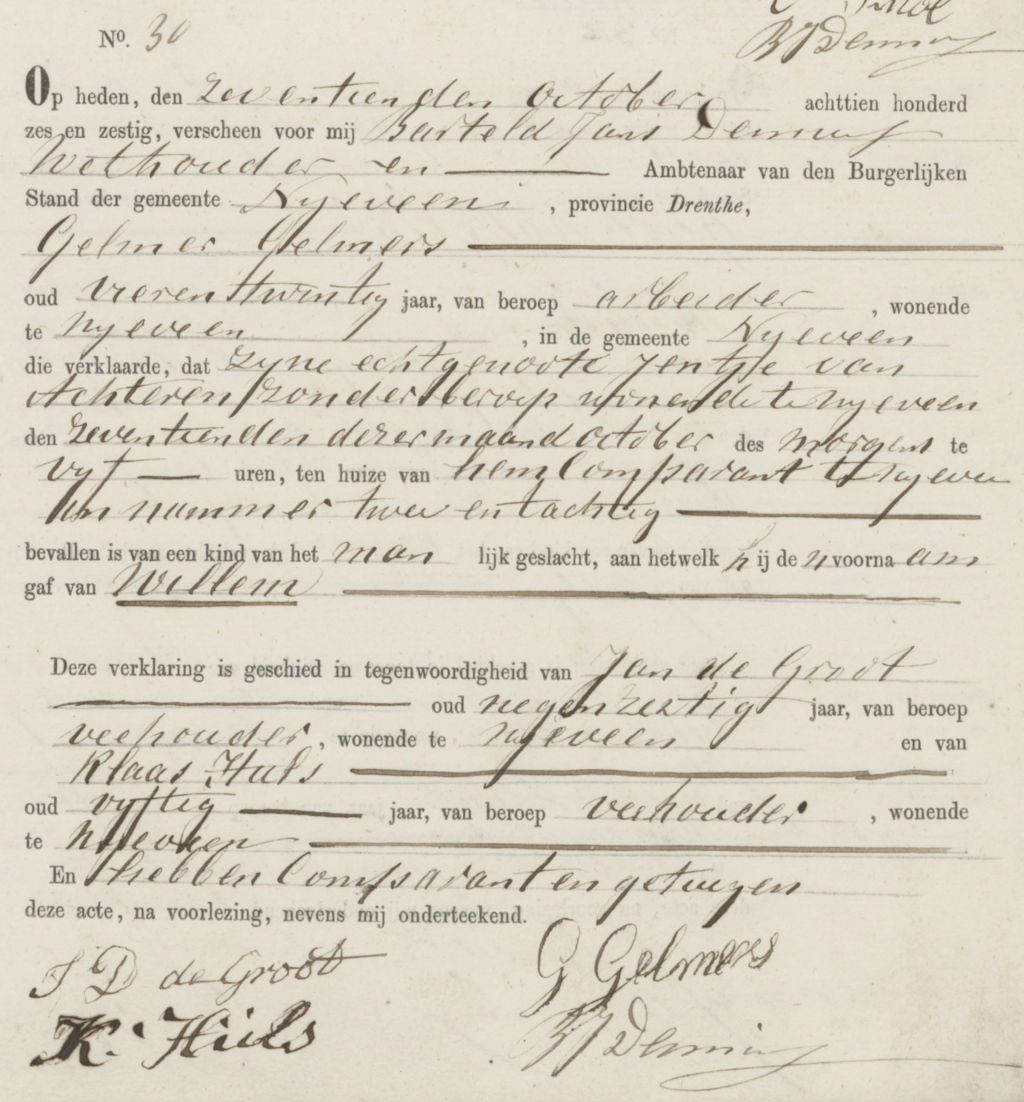 No. 30
B J Denning
Op heden, den zeventienden October achttien honderd
zes en zestig, verscheen voor mij Barteld Jans Denning
Wethouder en Ambtenaar van den Burgerlijken
Stand der gemeente Nyeveen, provincie Drenthe,
Gelmer Gelmers
oud vierentwintig jaar, van beroep arbeider, wonende
te Nyeveen, in de gemeente Nyeveen
die verklaarde, dat zyne echtgenoote Jentje van
Achteren, zonder beroep wonende te Nyeveen
den zeventienden dezer maand October des morgens te
vyf uren, ten huize van hem Comparant te Nyeveen
in nummer twee en tachtig
bevallen is van een kind van het manlijk geslacht, aan hetwelk hij den voornaam
gaf van Willem
Deze verklaring is geschied in tegenwoordigheid van Jan de Groot
oud negenzestig jaar, van beroep
veehouder, wonende te Nyeveen en van
Klaas Huls
oud vyftig jaar, van beroep veehouder, wonende
te Nyeveen
En hebben Comparant en getuigen
deze acte, na voorlezing, nevens mij onderteekend.
J D de Groot G Gelmers
K. Huls B J Denning